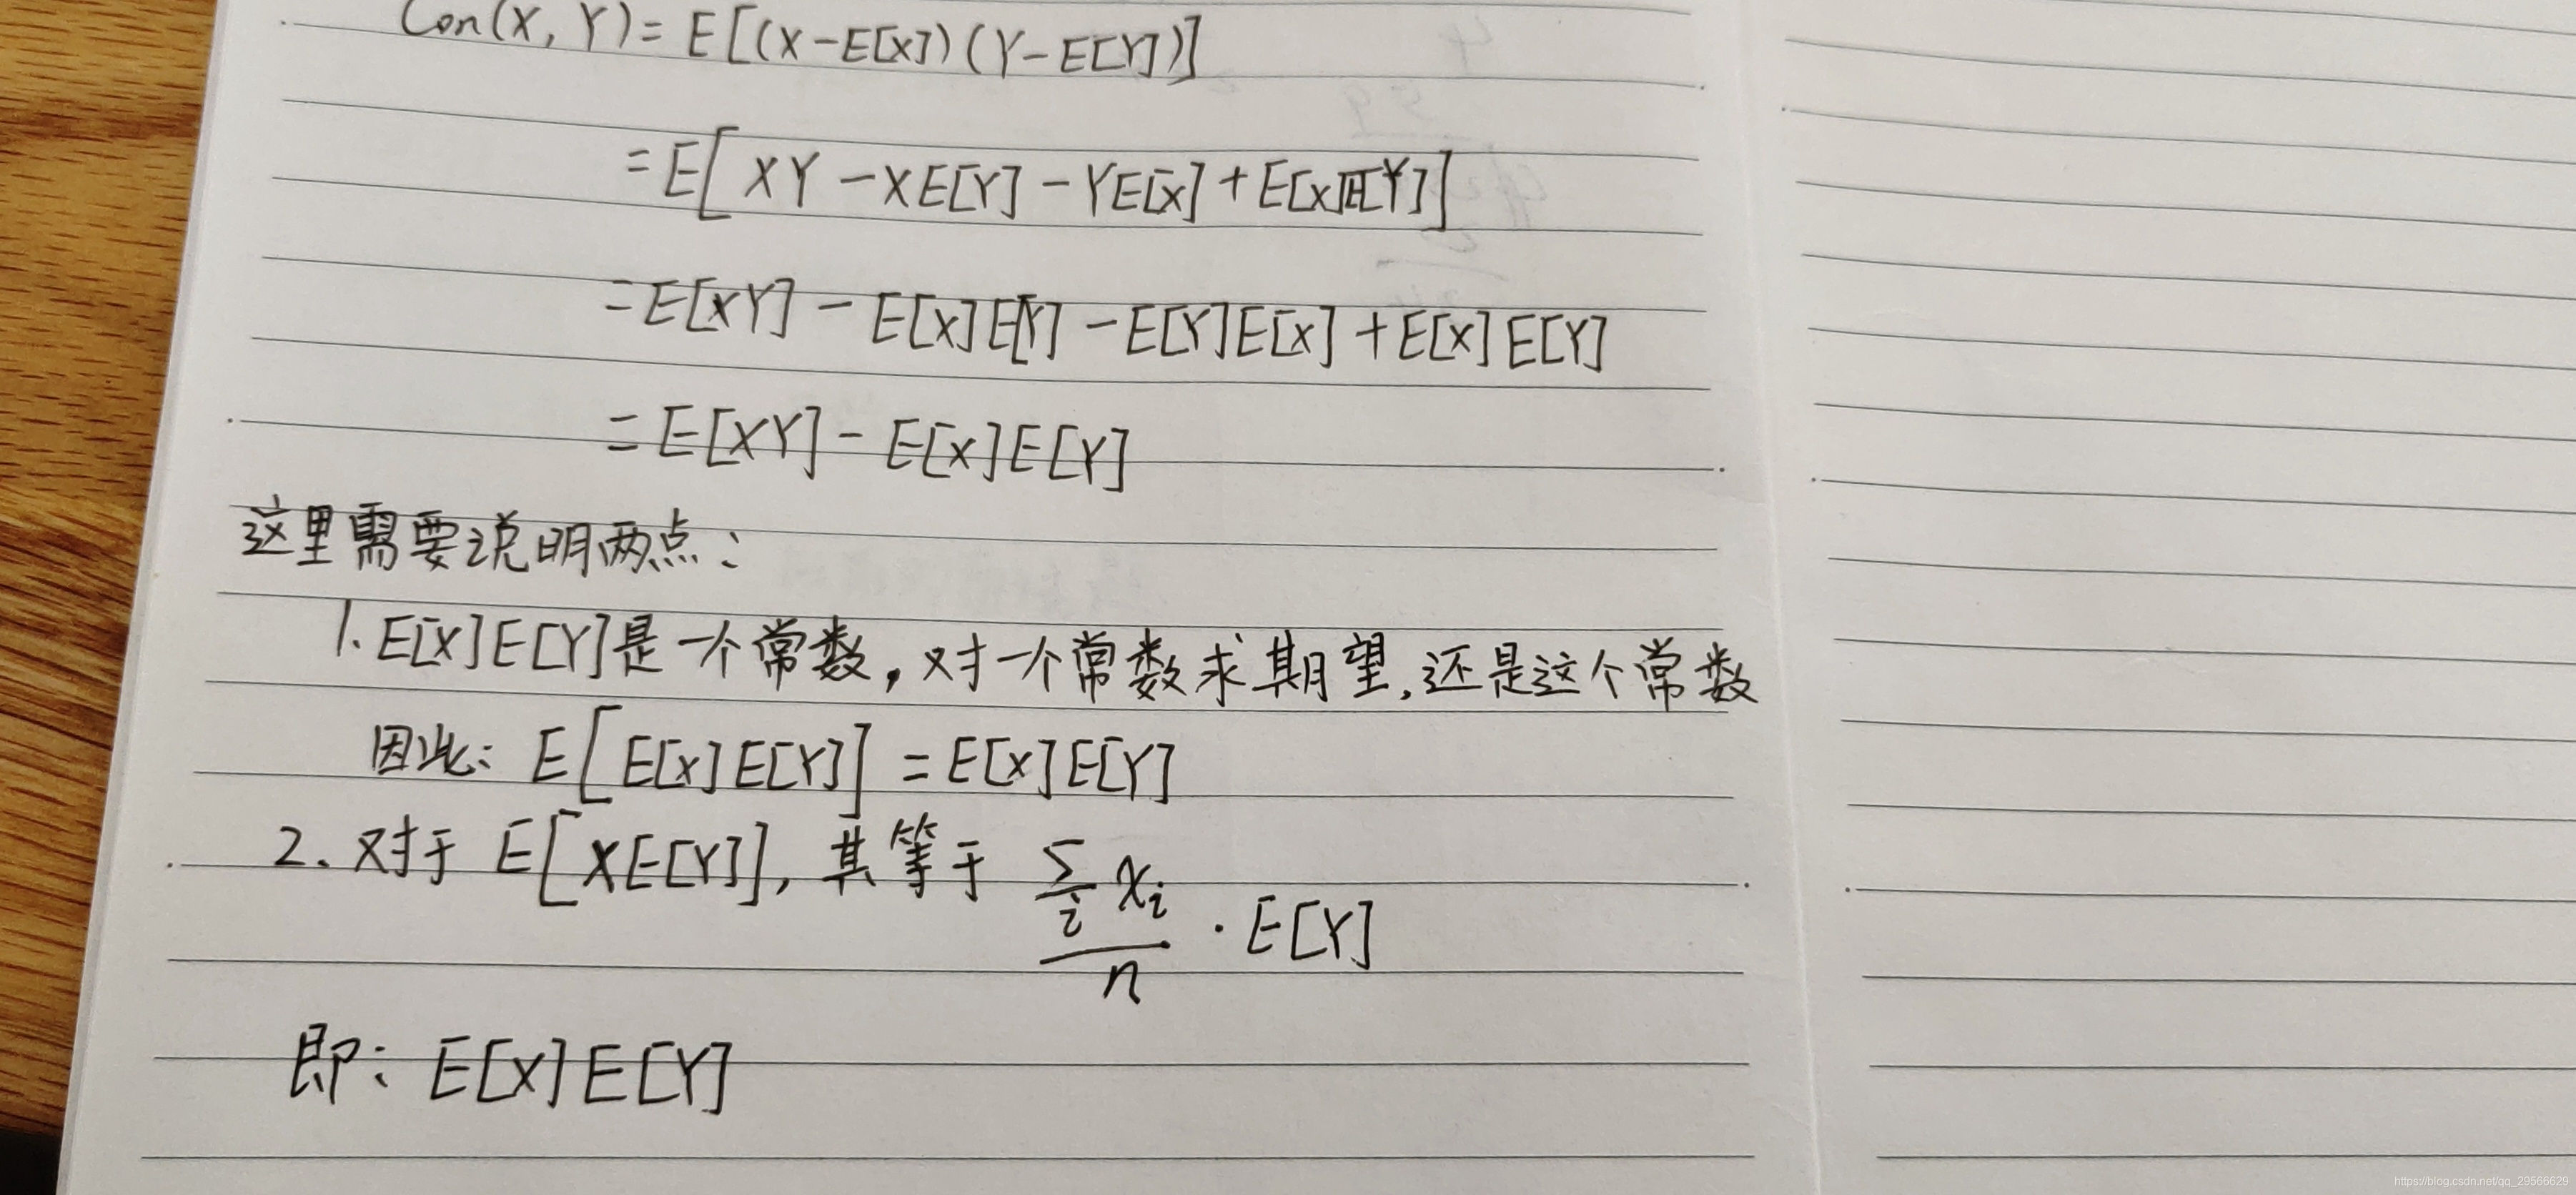 Con(X, Y) = E[(X-E[X])(Y-E[Y])]
= E[XY - XE[Y] - YE[X] + E[X]E[Y]]
= E[XY] - E[X]E[Y] - E[Y]E[X] + E[X]E[Y]
= E[XY] - E[X]E[Y]
这里需要说明两点：
1. E[X]E[Y]是一个常数，对一个常数求期望，还是这个常数
因此： E[E[X]E[Y]] = E[X]E[Y]
2. 对于 E[XE[Y]]，其等于 \frac{\sum_i x_i}{n} · E[Y]
即： E[X]E[Y]
https://blog.csdn.net/qq_29566629